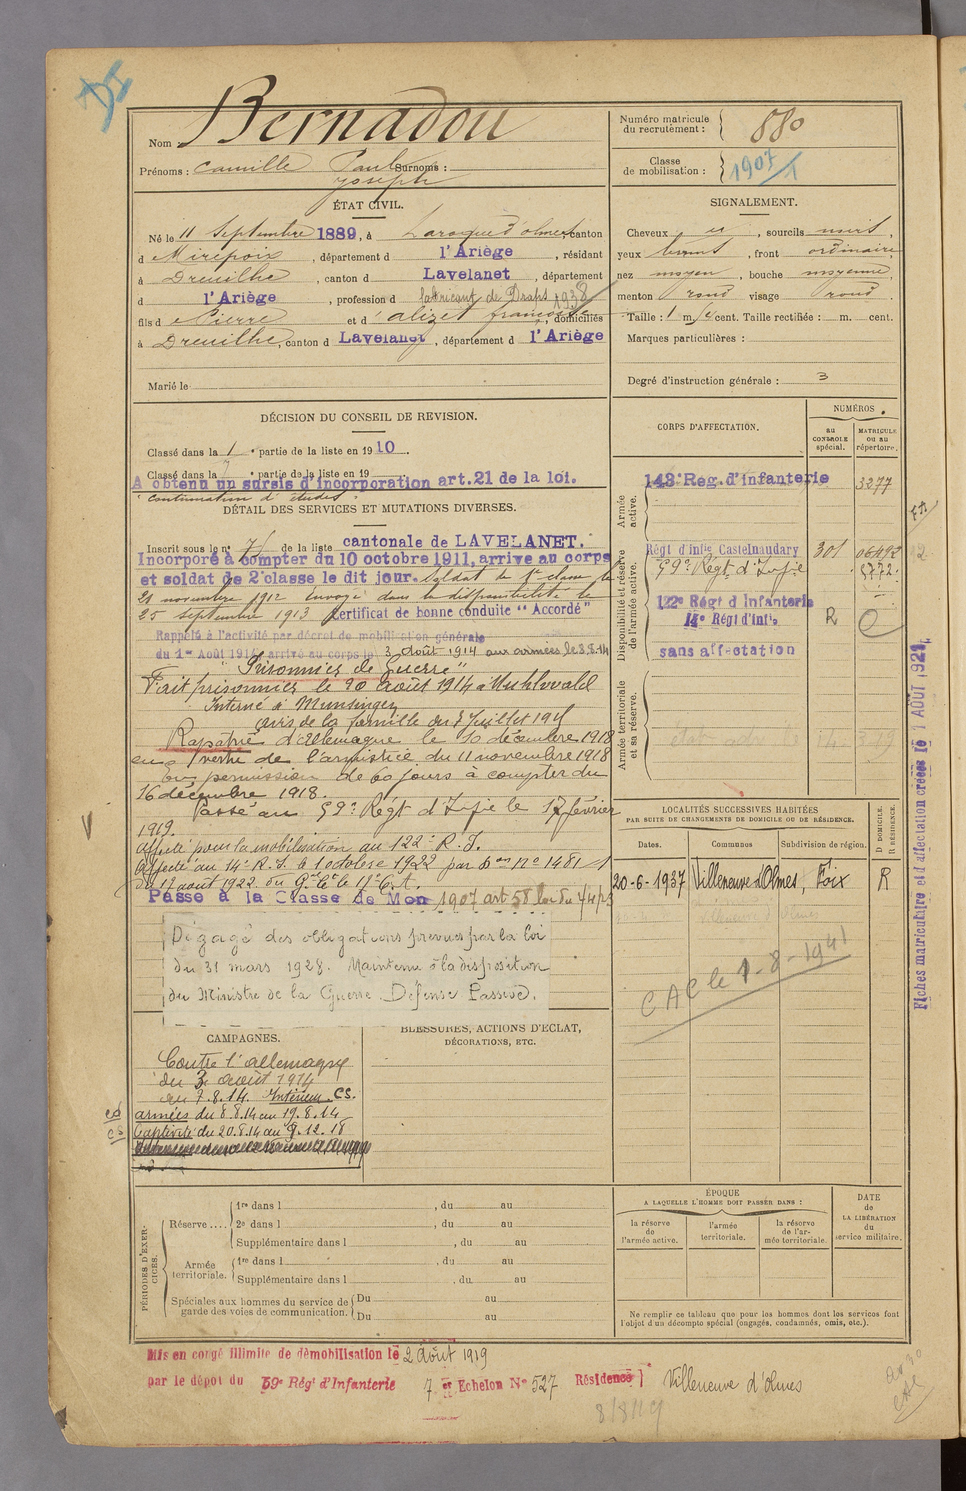 Nom Bernadou
Prénoms : Camille Paul Surnoms :
Joseph
Numéro matricule du recrutement : 880
Classe de mobilisation : 1907
ÉTAT CIVIL.
Né le 11 Septembre 1889, à Laroque d'olmes, canton
d Mirepoix, département d l'Ariège, résidant
à Dreuilhe, canton d Lavelanet, département
d l'Ariège, profession d fabricant de Draps 1938
fils d Pierre et d alizet françoise, domiciliés
à Dreuilhe, canton d Lavelanet, département d l'Ariège
Marié le
SIGNALEMENT.
Cheveux et, sourcils noirs,
yeux bruns, front ordinaire,
nez moyen, bouche moyenne,
menton rond visage rond.
Taille : 1 m. cent. Taille rectifiée : m. cent.
Marques particulières :
Degré d'instruction générale : 3
DÉCISION DU CONSEIL DE REVISION.
Classé dans la 1e partie de la liste en 1910.
Classé dans la 7e partie de la liste en 19
A obtenu un sursis d'incorporation art. 21 de la loi.
"continuation d'études"
DÉTAIL DES SERVICES ET MUTATIONS DIVERSES.
Inscrit sous le n° de la liste cantonale de LAVELANET.
Incorporé à compter du 10 octobre 1911, arrive au corps
et soldat de 2e classe le dit jour. Soldat de 1e classe le
21 novembre 1912 envoyé dans la disponibilité le
25 septembre 1913 Certificat de bonne conduite "Accordé"
Rappelé à l'activité par décret de mobilisation générale
du 1er Août 1914 arrivé au corps le 3 août 1914 aux armées le 8.8.14
"Prisonnier de Guerre"
Fait prisonnier le 20 août 1914 à
Interné à Munsingen
avis de la famille du 7 Juillet 1915
Rapatrié d'Allemagne le 10 décembre 1918
en vertu de l'armistice du 11 novembre 1918
en permission de 60 jours à compter du
16 décembre 1918.
Passé au 59e Regt d'Infie le 17 février
1919.
affecté pour la mobilisation au 122e R.I.
Affecté au 14e R.I. le 1 octobre 1922 par Don n° 1481/1
du 17 aout 1922 du Gal Ct le 17e C.A.
Passé à la Classe de Mon 1907 art 58 loi du 1/4/23
Dégagé des obligations prévues par la loi
du 31 mars 1928. Maintenu à la disposition
du Ministre de la Guerre. Défense Passive.
CORPS D'AFFECTATION.
NUMÉROS
au CONTROLE spécial.
MATRICULE ou au répertoire.
Armée active.
143e Reg. d'infanterie 3277
Disponibilité et réserve de l'armée active.
Régt d'infie Castelnaudary 301 06492
59e Regt d'Infie 5772
122e Régt d'Infanterie
14e Régt d'Infie R
sans affectation
Armée territoriale et sa réserve.
LOCALITÉS SUCCESSIVES HABITÉES
PAR SUITE DE CHANGEMENTS DE DOMICILE OU DE RÉSIDENCE.
Dates. Communes Subdivision de région.
D DOMICILE.
R RÉSIDENCE.
20-6-1937 Villeneuve d'Olmes, Foix R
CAC le 1-8-1941
Fiches matriculaire et d'affectation créées le 1 AOUT 1921.
CAMPAGNES.
Contre l'allemagne
du 3 août 1914
au 7.8.14. Intérieur CS.
armées du 8.8.14 au 19.8.14
Captivité du 20.8.14 au 9.12.18
BLESSURES, ACTIONS D'ÉCLAT,
DÉCORATIONS, ETC.
PÉRIODES D'EXERCICES.
Réserve....
1re dans l , du au
2e dans l , du au
Supplémentaire dans l , du au
Armée territoriale.
1re dans l , du au
Supplémentaire dans l , du au
Spéciales aux hommes du service de garde des voies de communication.
Du au
Du au
ÉPOQUE
A LAQUELLE L'HOMME DOIT PASSER DANS :
la réserve de l'armée active.
l'armée territoriale.
la réserve de l'armée territoriale.
DATE
de
LA LIBÉRATION
du
service militaire.
Ne remplir ce tableau que pour les hommes dont les services font
l'objet d'un décompte spécial (engagés, condamnés, omis, etc.).
Mis en congé illimité de démobilisation le 2 août 1919
par le dépôt du 59e Régt d'Infanterie 7 e Echelon N° 527 Résidence Villeneuve d'Olmes
8/8/19